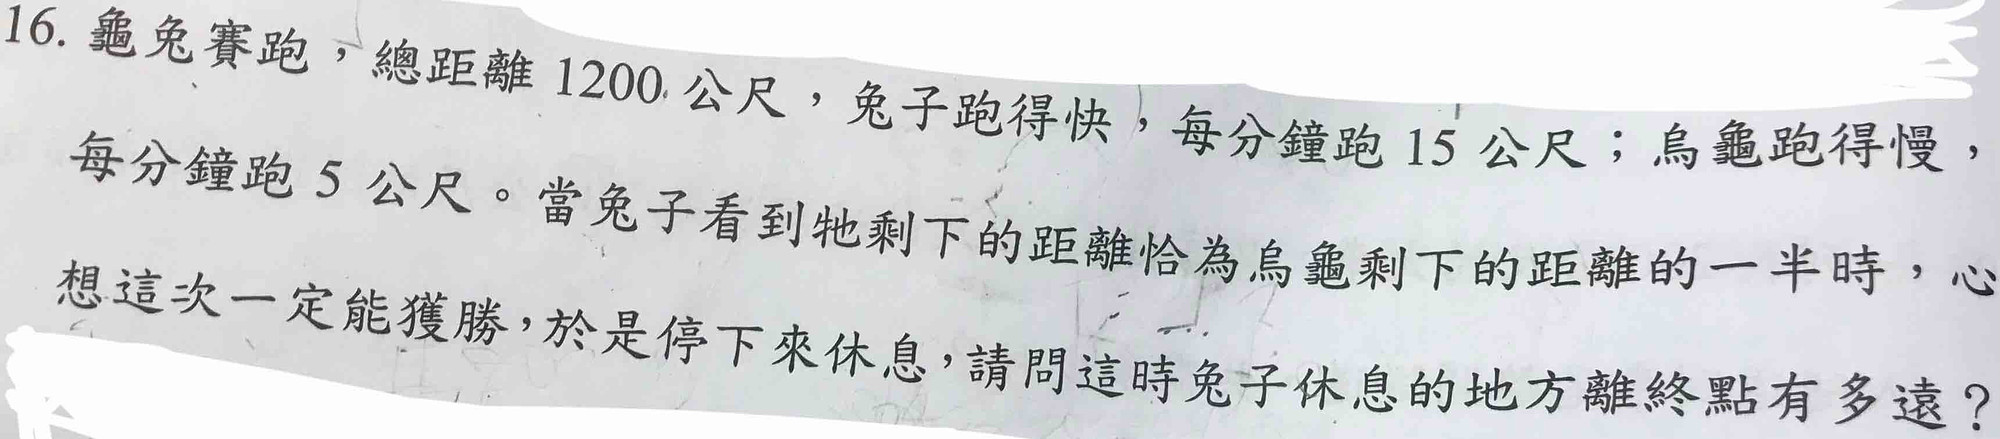 16. 龜兔賽跑，總距離 1200 公尺，兔子跑得快，每分鐘跑 15 公尺；烏龜跑得慢，
每分鐘跑 5 公尺。當兔子看到牠剩下的距離恰為烏龜剩下的距離的一半時，心
想這次一定能獲勝，於是停下來休息，請問這時兔子休息的地方離終點有多遠？